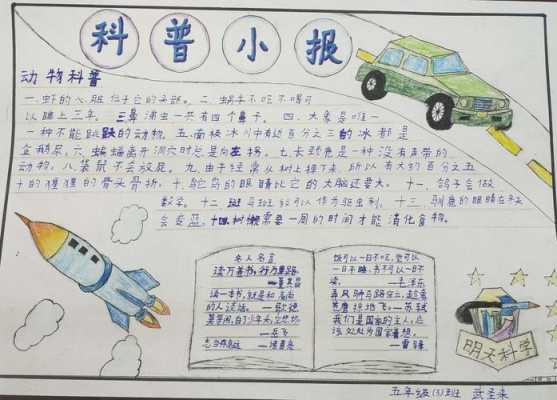 科普小报
动物科普
一.虾的心脏位于它的头部。二.蜗牛不吃不喝可
以睡上三年. 三.鼻涕虫一共有四个鼻子。四.大象是唯一
一种不能跳跃的动物. 五.南极冰川中有近百分之三的冰都是
企鹅尿. 六.蝙蝠离开洞穴时总是向左拐. 七.长颈鹿是一种没有声带的
动物. 八.袋鼠不会放屁. 九.由于经常从树上摔下来. 所以有大约百分之五
十的猩猩的骨头骨折. 十.鸵鸟的眼睛比它的大脑还要大. 十一.鸽子会做
数学. 十二.斑马斑纹可以作为驱虫剂. 十三.驯鹿的眼睛在冬天
会变蓝. 十四.树懒需要一周的时间才能消化食物.
名人名言
读万卷书,行万里路
—董其昌
读一本书,就是和高尚
的人谈话. —歌德
莫等闲,白了少年头,空悲切
—岳飞
饭可以一日不吃,觉可以
一日不睡,书不可以一日不
读. —毛泽东
—苏轼
我们是国家的主人,应
该处处为国家着想.
—雷锋
明天科学
五年级(3)班